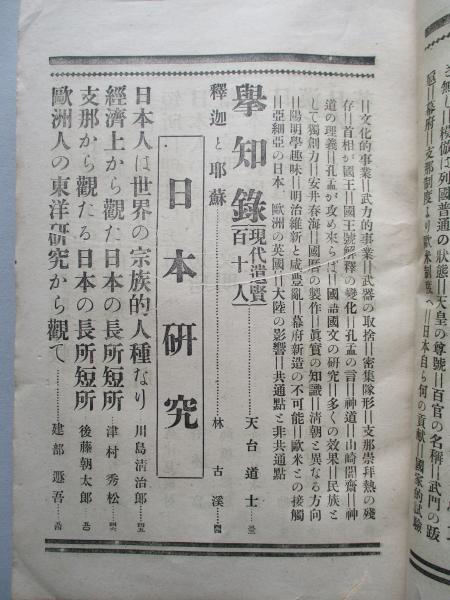 き無し||模倣は列國普通の狀態||天皇の尊號||百官の名稱||武門の跋
扈||幕府||支那制度より歐米制度へ||日本自ら何の貢獻||國家的試驗
||文化的事業||武力的事業||武器の取捨||密集隊形||支那崇拜熱の殘
存||首相が國王||國王號解釋の變化||孔孟の言||神道||山崎闇齋||神
道の理義||孔孟が攻め來らば||國語國文の硏究||多くの效果||民族と
して獨創力||安井春海||國曆の製作||眞實の知識||淸朝と異なる方向
||陽明學趣味||明治維新と咸豊亂||幕府新造の不可能||歐米との接觸
||亞細亞の日本、歐洲の英國||大陸の影響||共通點と非共通點
擧知錄 現代遺賢百十人 天台道士
釋迦と耶蘇 林古溪
日本硏究
日本人は世界の宗族的人種なり 川島淸治郎
經濟上から觀た日本の長所短所 津村秀松
支那から觀たる日本の長所短所 後藤朝太郎
歐洲人の東洋硏究から觀て 建部遯吾